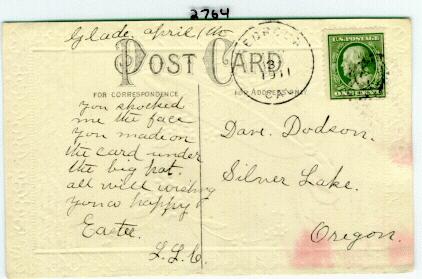 2764
Glade, april/10
POST CARD
FOR CORRESPONDENCE
FOR ADDRESS ONLY
1911
CA
U.S. POSTAGE
ONE CENT
you shocked
me the face
you made on
the card under
the big hat.
all well wishing
you a happy
Easter.
L.L.C.
Dave. Dodson.
Silver Lake.
Oregon.